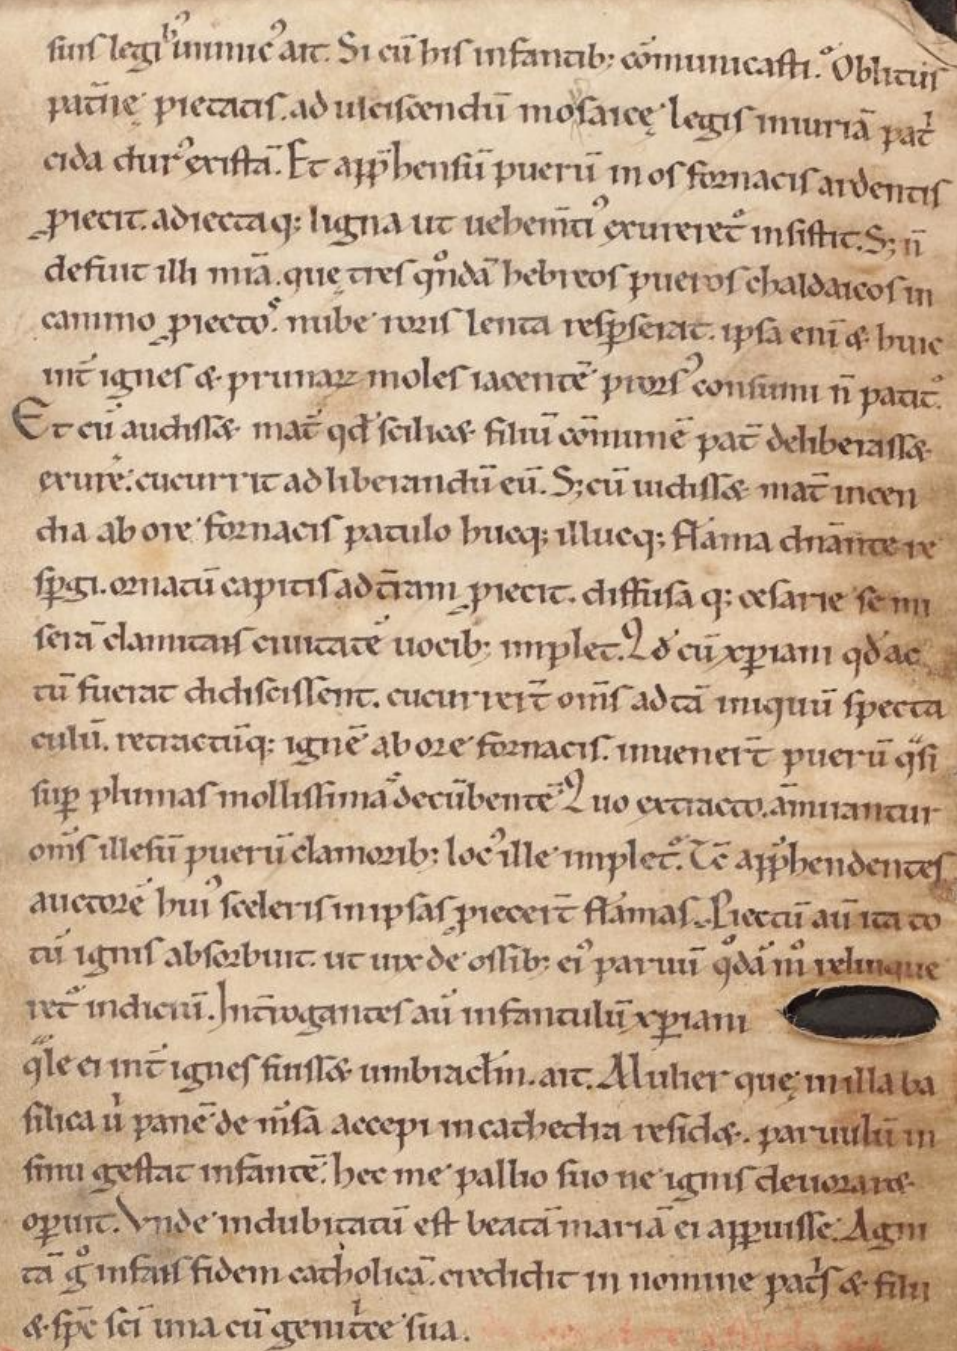 suis legib; inimic᾽ ait. Si cū his infantib; cōmunicasti. Oblitus
pat̄nę pietatis. ad ulciscendū mosaicę legis iniuriā pat͛i
cida dur᾽ existā. Et app̄hensū puerū in os fornacis ardentis
ꝓiecit. adiectaq; ligna ut uehem̄ti᾽ exureret᷑ insistit. S; n̄
defuit illi mīa. quę tres qn̄dā hebreos pueros chaldaico in
camino ꝓiectos. nube roris lenta respserat. ipsa eni᷑ & huic
int̄ ignes & prunaꝝ moles iacentē prors᾽ consumi n̄ patit᷑.
Et cū audiss& mat̄ qd̄ scilic& filiū cōmunē pat̄ deliberass&
exure͛. cucurrit ad liberandū eū. S; cū uidiss& mat̄ incen
dia ab ore fornacis patulo hucq; illucq; flāma dn̄ante re
sp̄gi. ornatū capitis ad t̄ram ꝓiecit. diffusa q; cesarie se mi
serā clamitans ciuitatē uocib; implet. Qd̄ cū xp̄iani qd̄ ac
tū fuerat didicissent. cucurrer̄t om̄s ad tā iniquū specta
culū. retractūq; ignē ab ore fornacis. inuener̄t puerū q̄si
suꝑ plumas mollissimas decūbentē. Quo extracto. āmirantur
om̄s illesū puerū clamorib; loc᾽ ille implet᷑. Tc̄ app̄hendentes
auctorē hui᾽ sceleris in ipsas ꝓiecer̄t flāmas. Proiectū aū ita to
tū ignis absorbuit. ut uix de ossib; ei᾽ paruū qͦdā mͦ relinque
ret᷑ indiciū. Int̄rogantes aū infantulū xp̄iani
q̄le ei int̄ ignes fuiss& umbraclm̄. ait. Mulier quę in illa ba
silica ů panē de m̄sa accepi in cathedra resid&. paruulū in
sinu gestat infantē. hec me pallio suo ne ignis deuorar&
oꝑuit. Vnde indubitatū est beatā mariā ei apparuisse. Agni
tā gͦ infans fidem catholicā. credidit in nomine pat͛s & filii
& sp̄c sc̄i una cū genit͛ce sua.